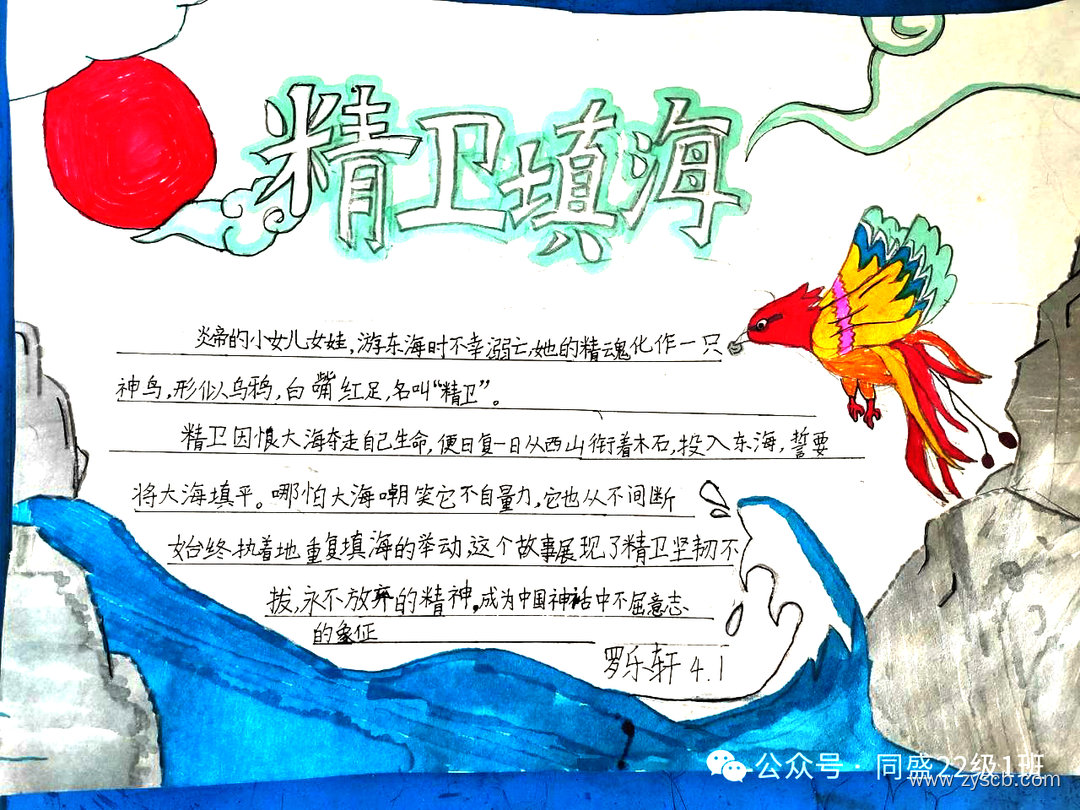 精卫填海
炎帝的小女儿女娃,游东海时不幸溺亡,她的精魂化作一只
神鸟,形似乌鸦,白嘴红足,名叫“精卫”。
精卫因恨大海夺走自己生命,便日复一日从西山衔着木石,投入东海,誓要
将大海填平。哪怕大海嘲笑它不自量力,它也从不间断
始终执着地重复填海的举动,这个故事展现了精卫坚韧不
拔,永不放弃的精神,成为中国神话中不屈意志
的象征
罗乐轩 4.1
公众号·同盛22级1班
www.zyscb.com